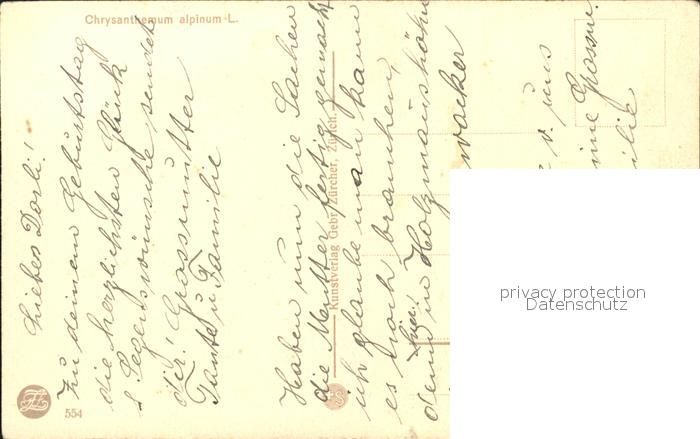 Chrysanthemum alpinum L.
Liebes Dorli!
Zu deinem Geburtstag
die herzlichsten Glück
& Segenswünsche sendet
dir! Grossmutter
Tante u Familie
Haben nun die Sachen
die Mutter fertig gemacht
ich glaube man kann
es noch brauchen,
denn in Holzmanshöhn
wacker
v. uns
eine Grossm.
554
Kunstverlag Gebr. Zürcher, Zürich.
privacy protection
Datenschutz